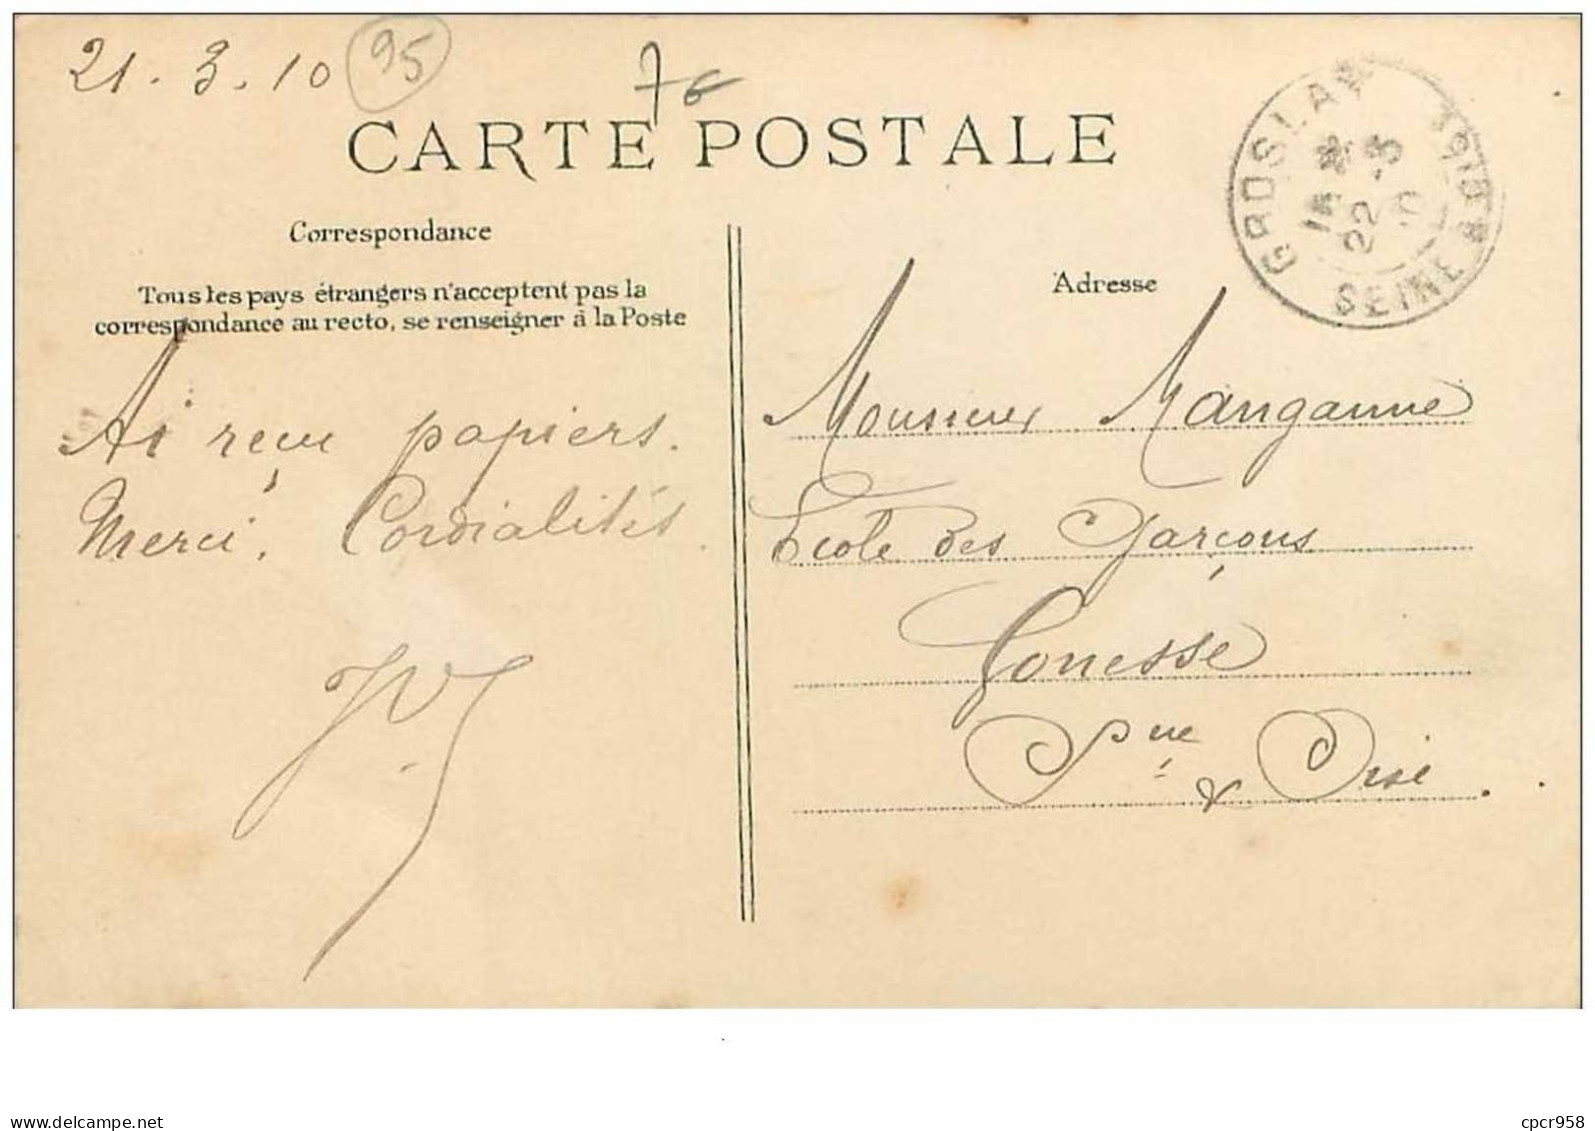 21.3.10
95
76
CARTE POSTALE
GROSLAY
22 -3
10
SEINE
OISE
Correspondance
Tous les pays étrangers n'acceptent pas la
correspondance au recto, se renseigner à la Poste
Adresse
Ai reçu papiers.
Merci. Cordialités.
Monsieur Manganne
École des Garçons
Gonesse
Sne & Oise.
www.delcampe.net
cpcr958